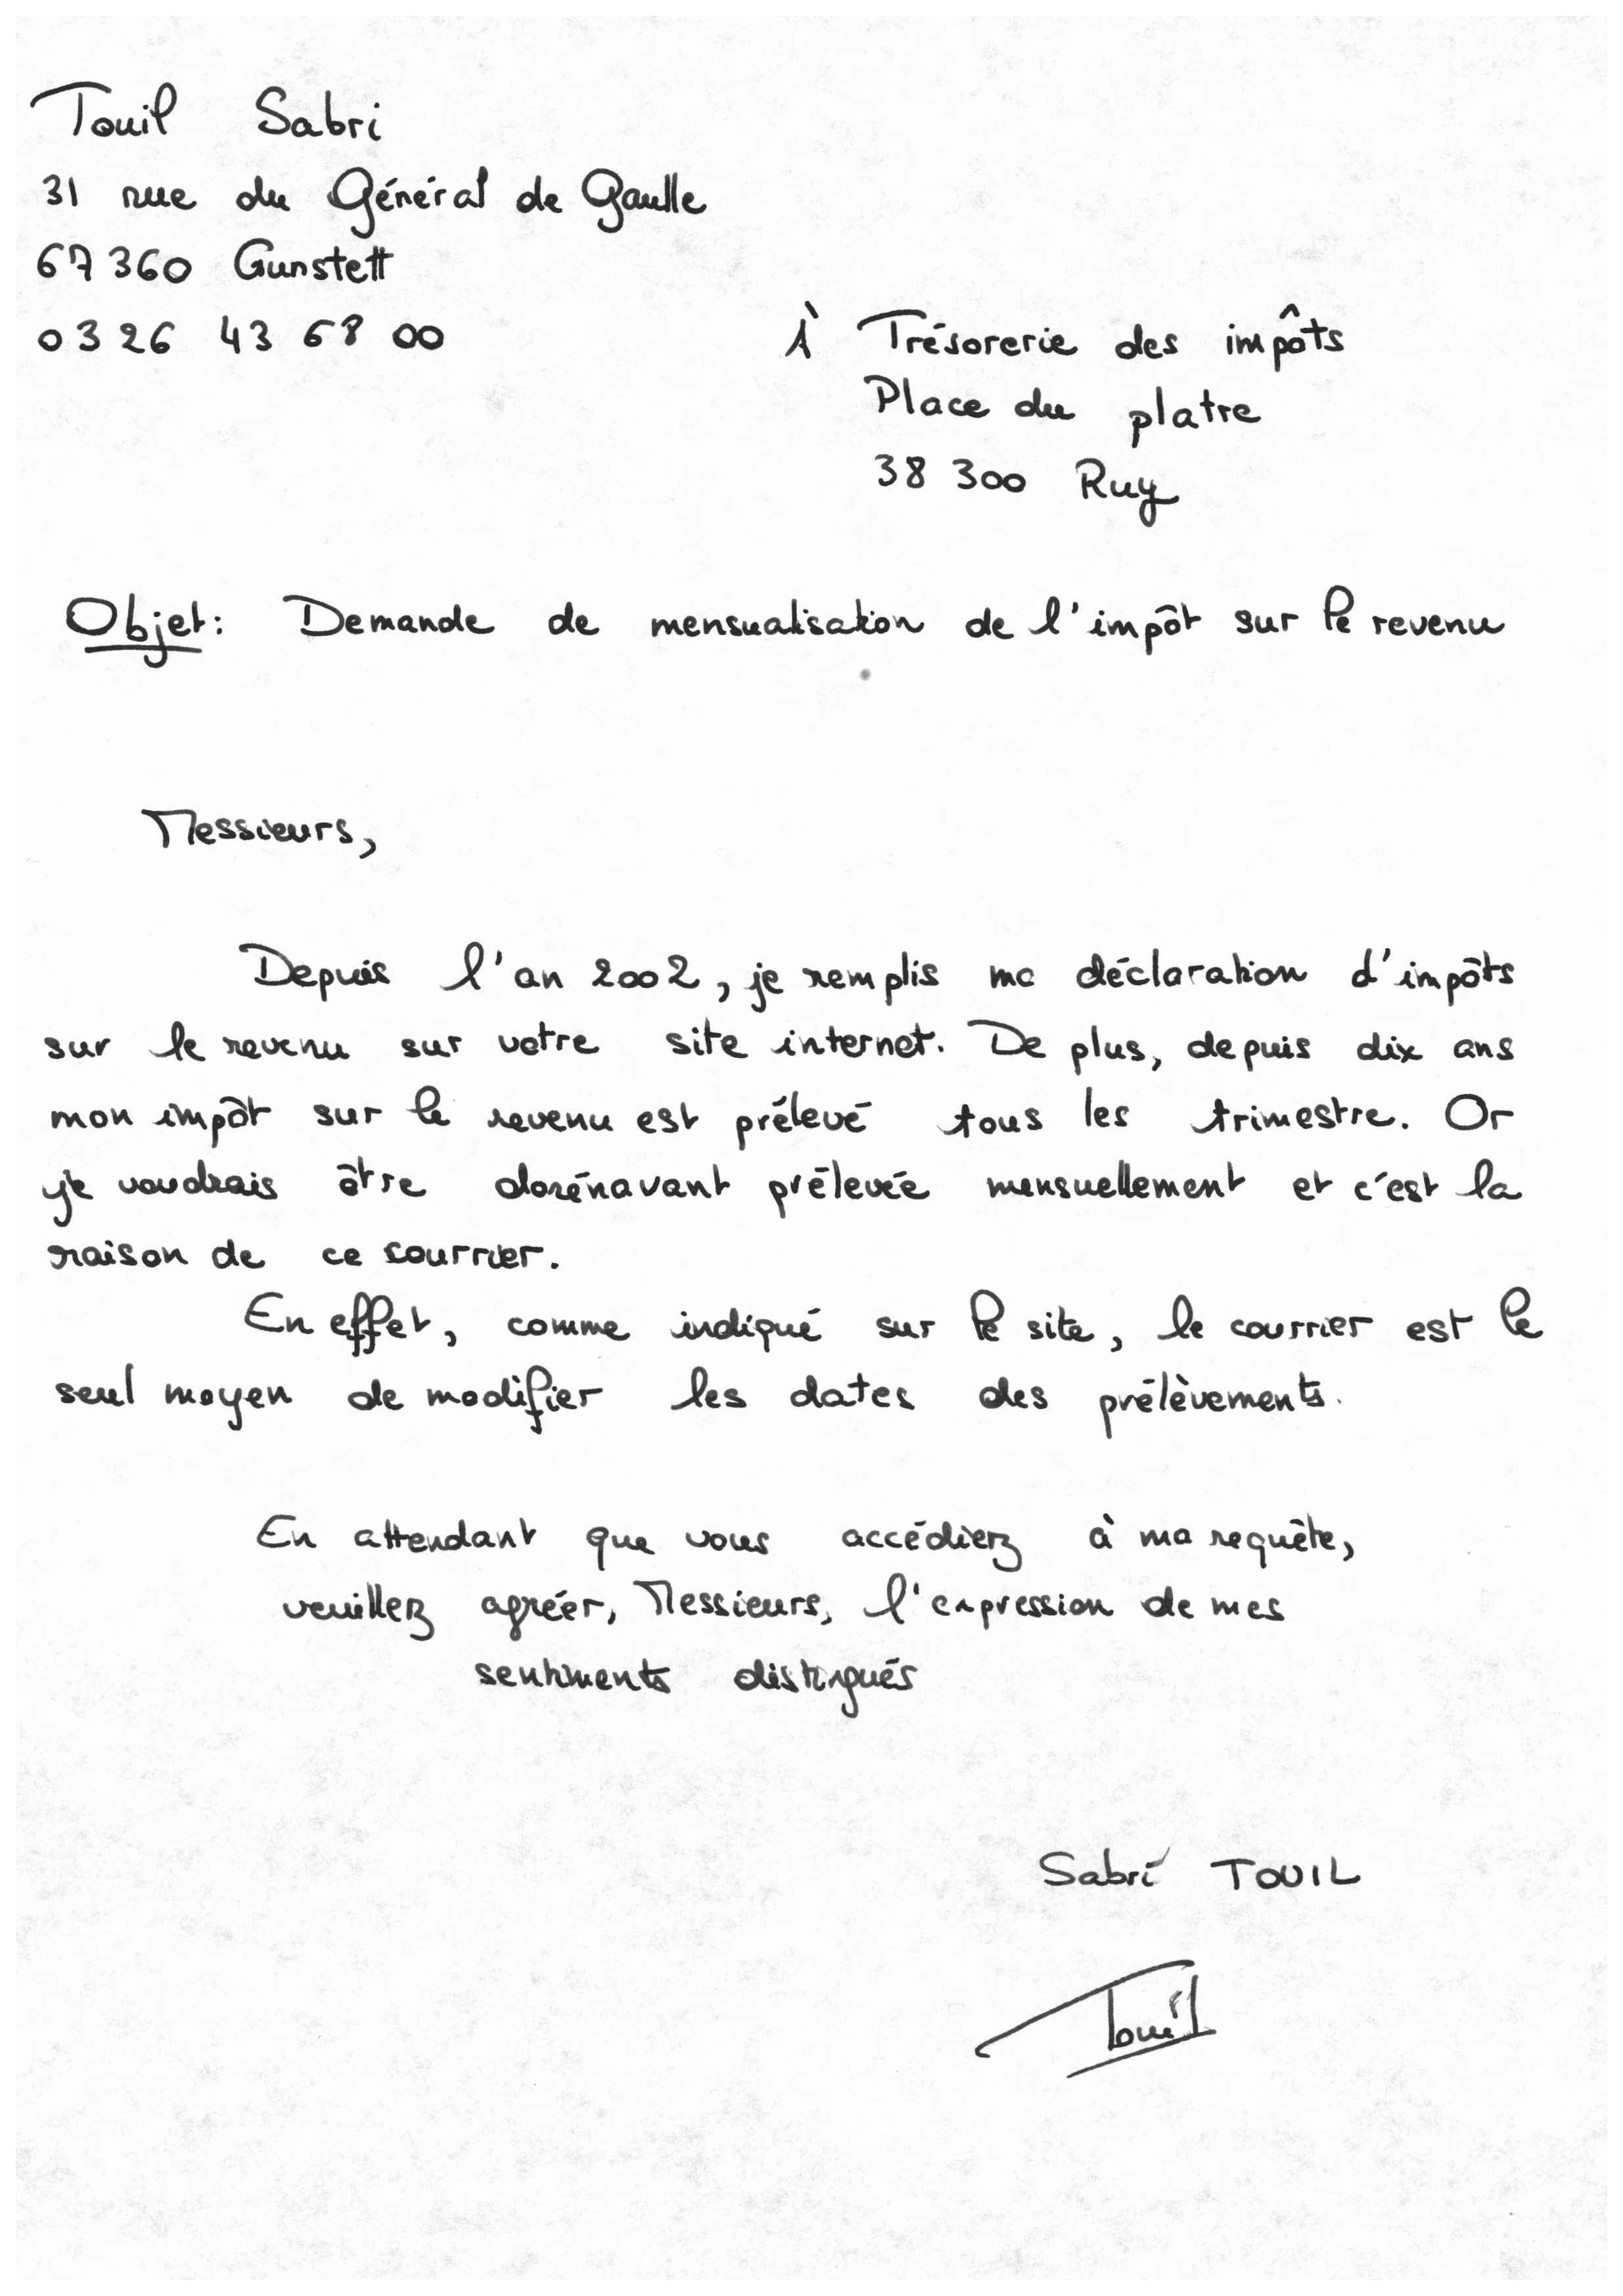 Touil Sabri
31 rue du Général de Gaulle
67 360 Gunstett
03 26 43 68 00
À Trésorerie des impôts
Place du platre
38 300 Ruy
Objet : Demande de mensualisation de l'impôt sur le revenu
Messieurs,
Depuis l'an 2002, je remplis ma déclaration d'impôts
sur le revenu sur votre site internet. De plus, depuis dix ans
mon impôt sur le revenu est prélevé tous les trimestre. Or
je voudrais être dorénavant prélevée mensuellement et c'est la
raison de ce courrier.
En effet, comme indiqué sur le site, le courrier est le
seul moyen de modifier les dates des prélèvements.
En attendant que vous accédierz à ma requête,
veuillez agréer, Messieurs, l'expression de mes
sentiments distingués
Sabri TOUIL
Touil